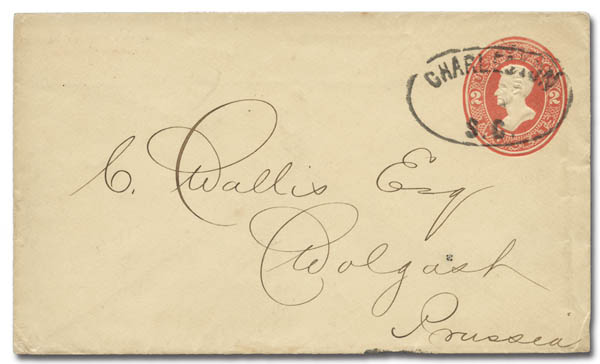 CHARLESTON
S.C
2 2
C. Wallis Esq
Wolgast
Prussia